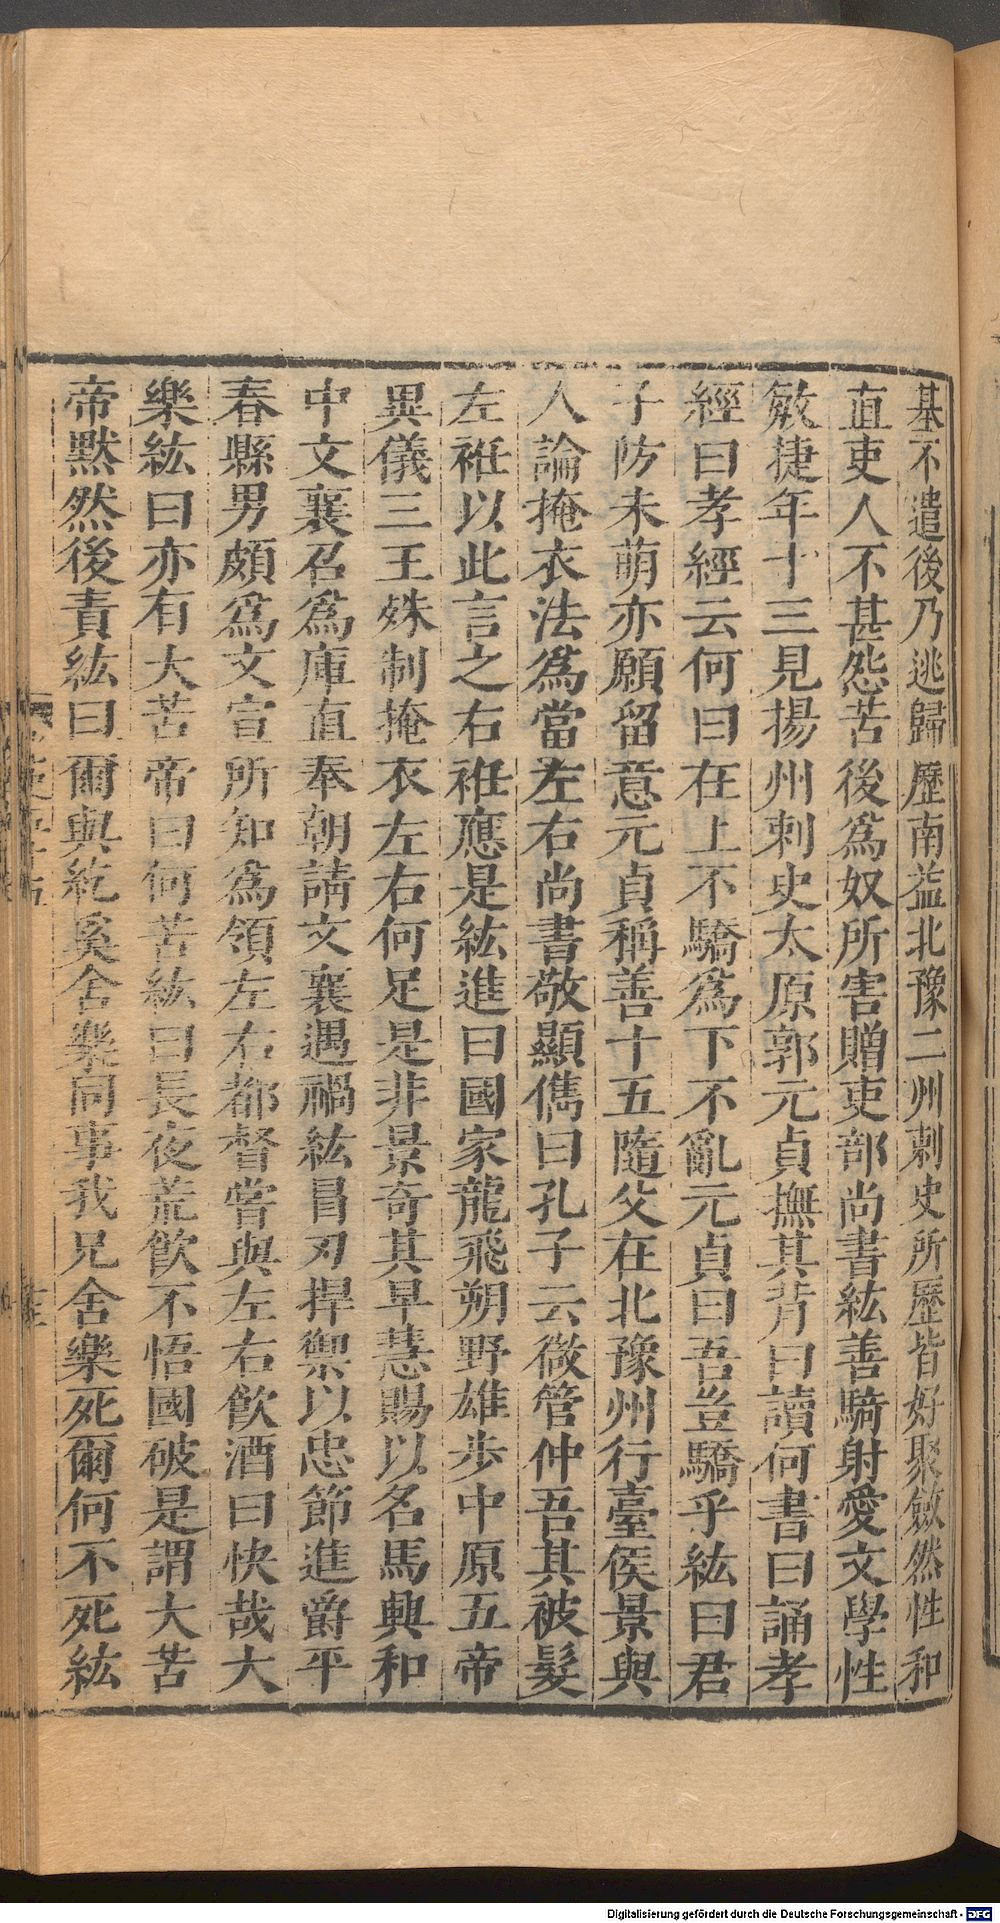 基不遣後乃逃歸歷南益北豫二州刺史所歷皆好聚斂然性和
直吏人不甚怨苦後爲奴所害贈吏部尚書紘善騎射愛文學性
敏捷年十三見揚州刺史太原郭元貞撫其背曰讀何書曰誦孝
經曰孝經云何曰在上不驕爲下不亂元貞曰吾豈驕乎紘曰君
子防未萌亦願留意元貞稱善十五隨父在北豫州行臺侯景與
人論掩衣法爲當左右尚書敬顯儁曰孔子云微管仲吾其被髮
左袵以此言之右袵應是紘進曰國家龍飛朔野雄步中原五帝
異儀三王殊制掩衣左右何足是非景奇其早慧賜以名馬興和
中文襄召爲庫直奉朝請文襄遇禍紘冒刃捍禦以忠節進爵平
春縣男頗爲文宣所知爲領左右都督嘗與左右飲酒曰快哉大
樂紘曰亦有大苦帝曰何苦紘曰長夜荒飲不悟國破是謂大苦
帝黙然後責紘曰爾與紇奚舍樂同事我兄舍樂死爾何不死紘
Digitalisierung gefördert durch die Deutsche Forschungsgemeinschaft - DFG